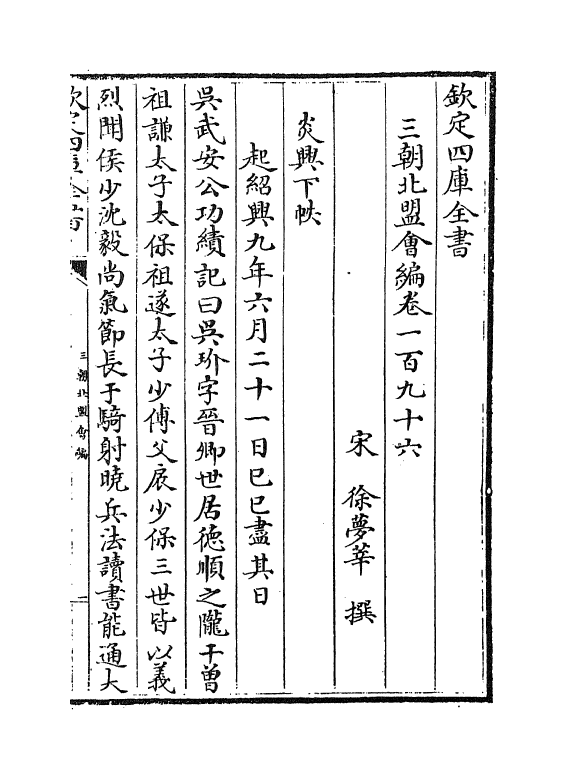 欽定四庫全書
三朝北盟會編卷一百九十六
宋　徐夢莘　撰
炎興下帙
起紹興九年六月二十一日己巳盡其日
吳武安公功績記曰吳玠字晉卿世居德順之隴干曾
祖謙太子太保祖遂太子少傅父扆少保三世皆以義
烈聞侯少沈毅尚氣節長于騎射曉兵法讀書能通大
欽定四庫全書
三朝北盟會編
一